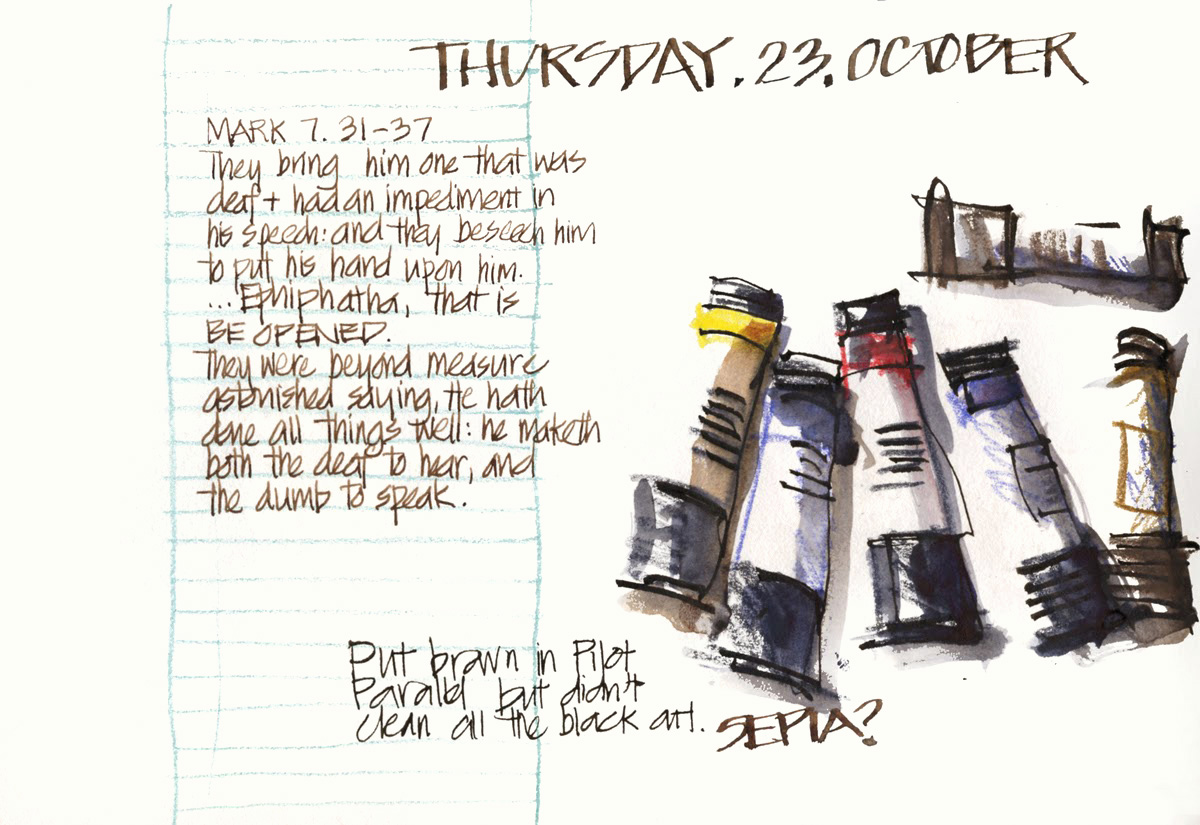 THURSDAY. 23. OCTOBER
MARK 7. 31-37
They bring him one that was
deaf + had an impediment in
his speech: and they beseech him
to put his hand upon him.
... Ephiphatha, that is
BE OPENED.
They were beyond measure
astonished saying, He hath
done all things well: he maketh
both the deaf to hear, and
the dumb to speak.
Put brown in Pilot
Parallel but didn't
clean all the black out. SEPIA?